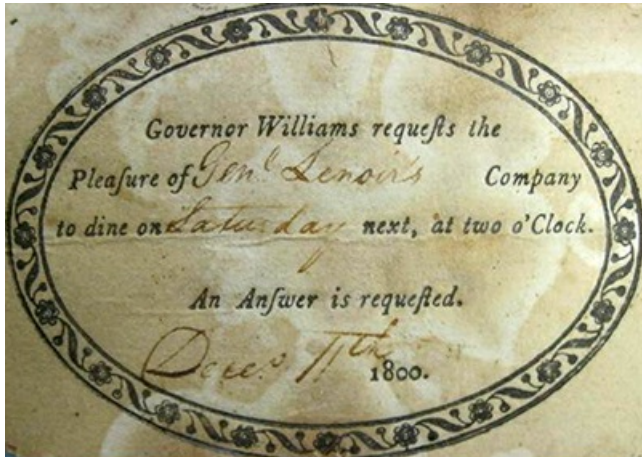 Governor Williams requeſts the
Pleaſure of Genl. Lenoir's Company
to dine on Saturday next, at two o'Clock.
An Anſwer is requeſted.
Decer. 11th 1800.